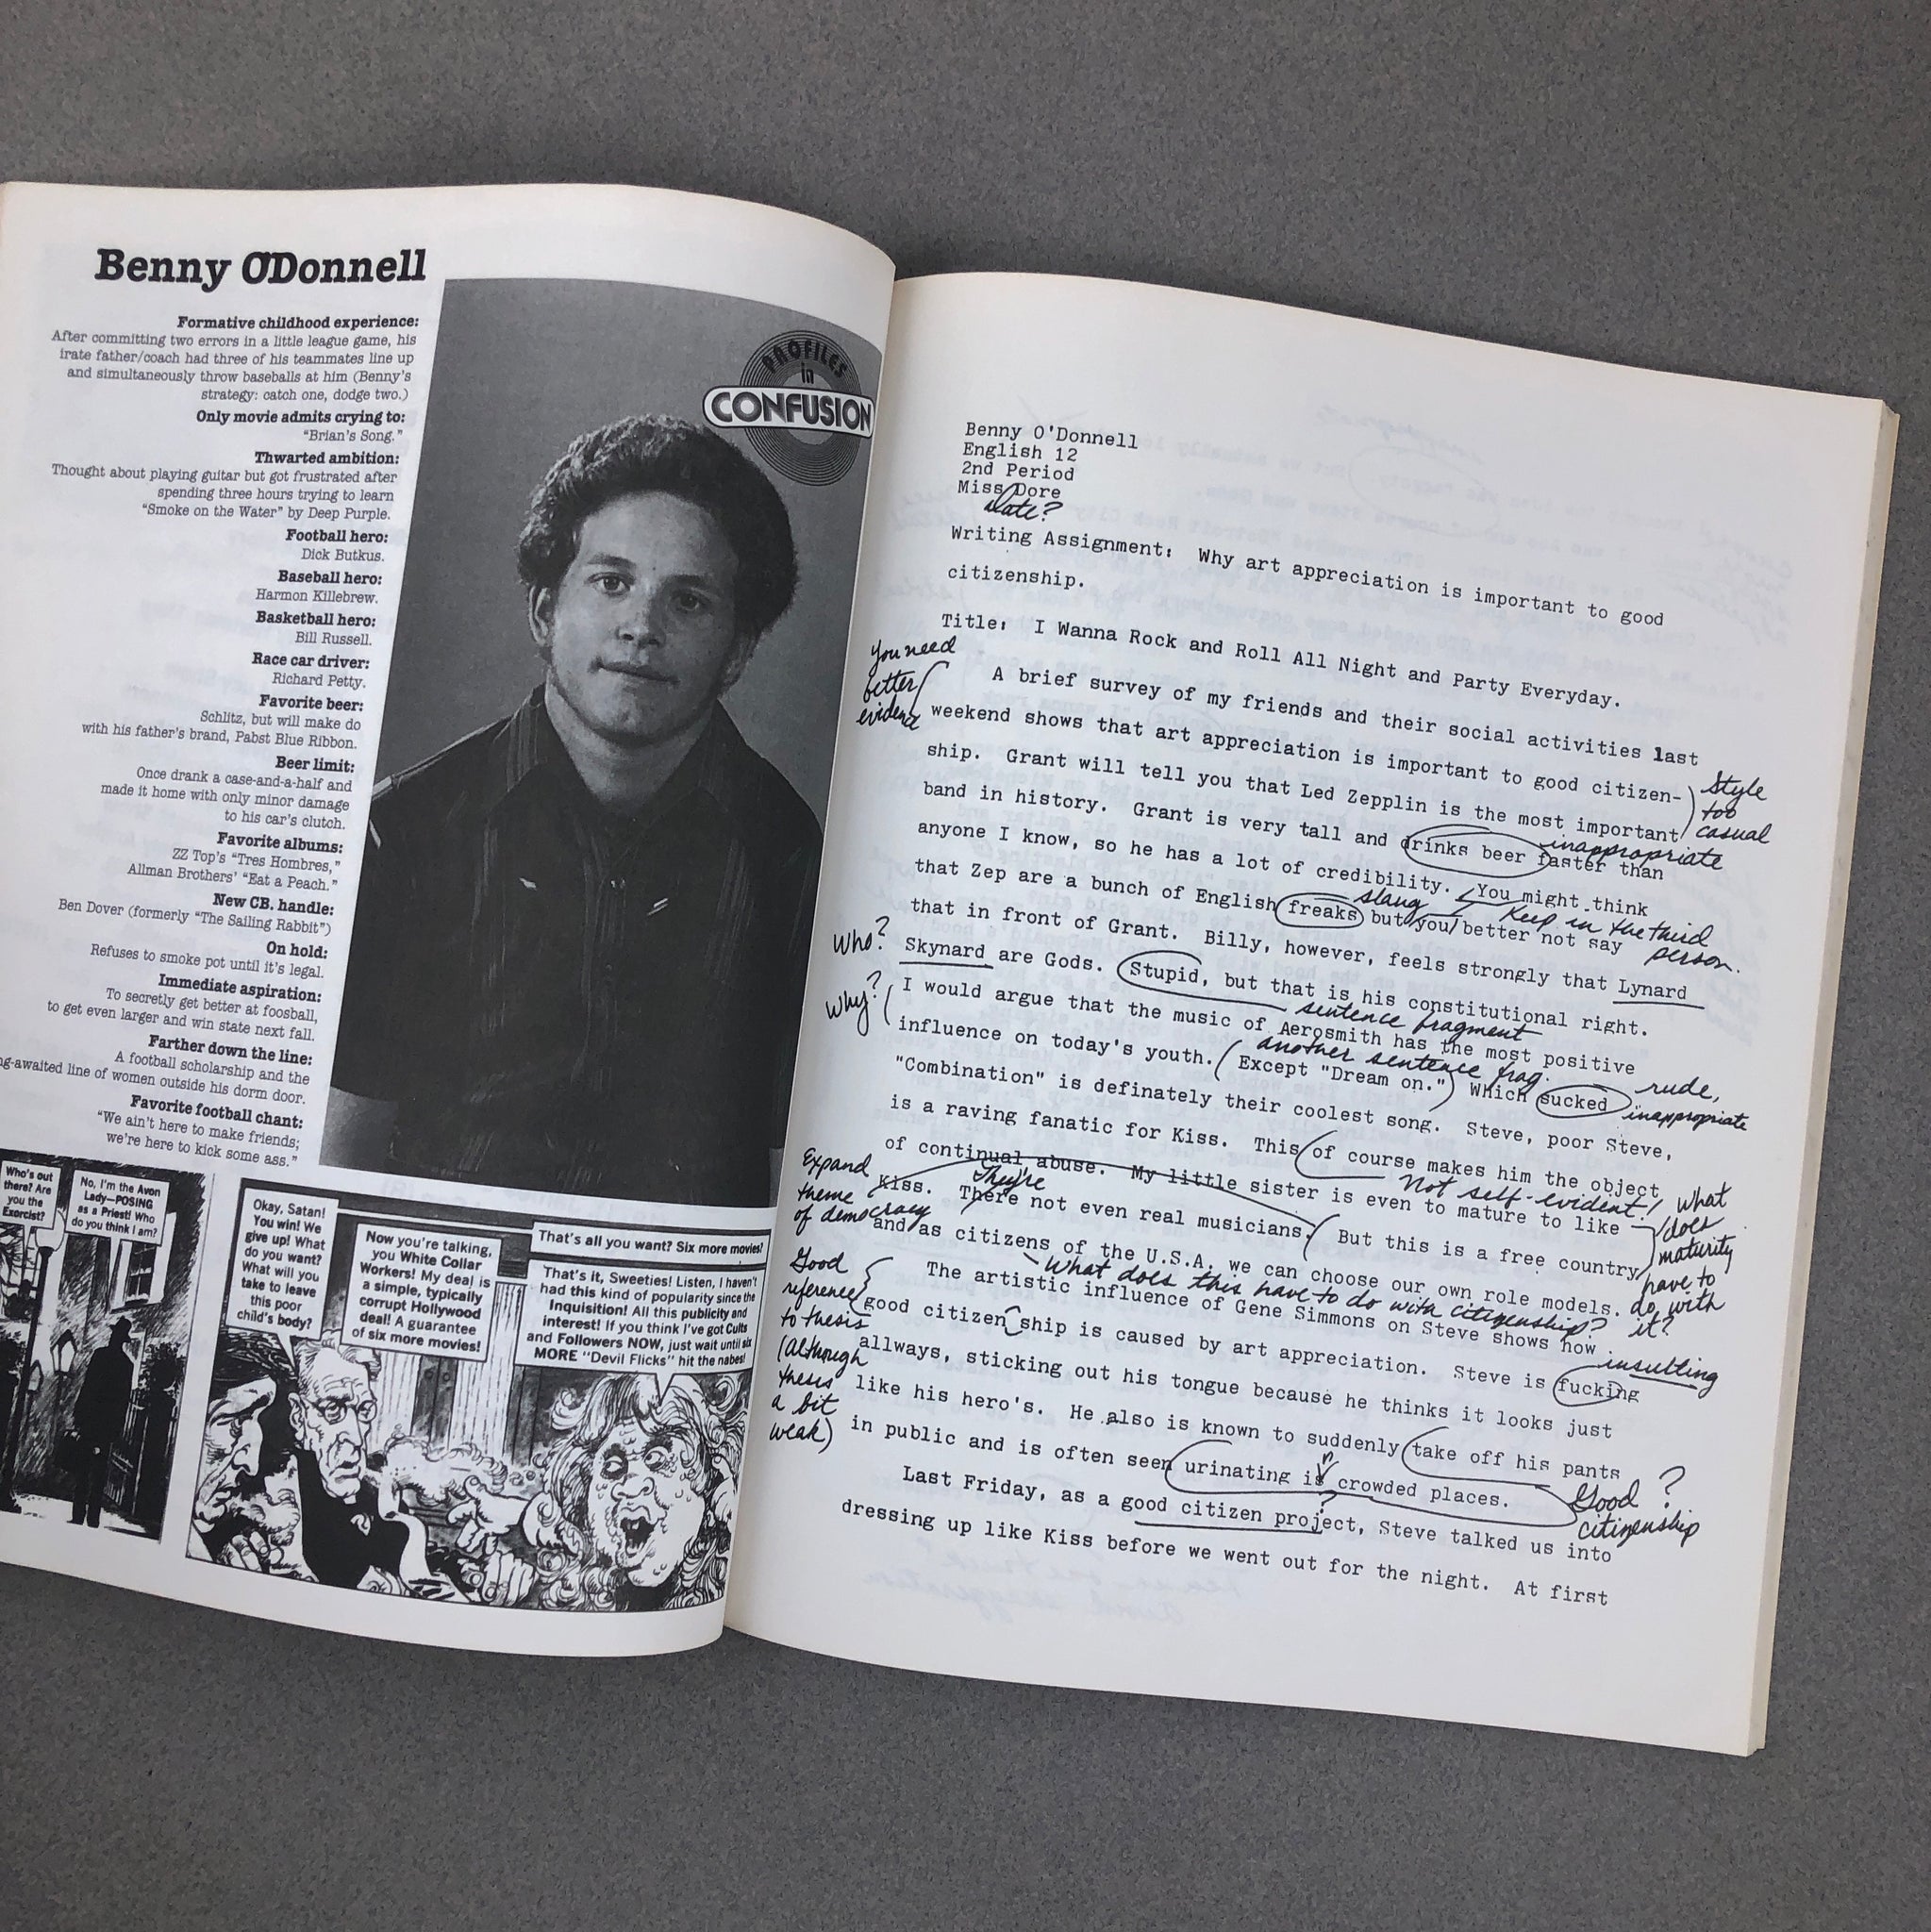 Benny O'Donnell
Formative childhood experience:
After committing two errors in a little league game, his
irate father/coach had three of his teammates line up
and simultaneously throw baseballs at him (Benny's
strategy: catch one, dodge two.)
Only movie admits crying to:
"Brian's Song."
Thwarted ambition:
Thought about playing guitar but got frustrated after
spending three hours trying to learn
"Smoke on the Water" by Deep Purple.
Football hero:
Dick Butkus.
Baseball hero:
Harmon Killebrew.
Basketball hero:
Bill Russell.
Race car driver:
Richard Petty.
Favorite beer:
Schlitz, but will make do
with his father's brand, Pabst Blue Ribbon.
Beer limit:
Once drank a case-and-a-half and
made it home with only minor damage
to his car's clutch.
Favorite albums:
ZZ Top's "Tres Hombres,"
Allman Brothers' "Eat a Peach."
New CB. handle:
Ben Dover (formerly "The Sailing Rabbit")
On hold:
Refuses to smoke pot until it's legal.
Immediate aspiration:
To secretly get better at foosball,
to get even larger and win state next fall.
Farther down the line:
A football scholarship and the
ng-awaited line of women outside his dorm door.
Favorite football chant:
"We ain't here to make friends;
we're here to kick some ass."
PROFILES
in
CONFUSION
Who's out
there? Are
you the
Exorcist?
No, I'm the Avon
Lady—POSING
as a Priest! Who
do you think I am?
Okay, Satan!
You win! We
give up! What
do you want?
What will you
take to leave
this poor
child's body?
Now you're talking,
you White Collar
Workers! My deal is
a simple, typically
corrupt Hollywood
deal! A guarantee
of six more movies!
That's all you want? Six more movies!
That's it, Sweeties! Listen, I haven't
had this kind of popularity since the
Inquisition! All this publicity and
interest! If you think I've got Cults
and Followers NOW, just wait until six
MORE "Devil Flicks" hit the nabes!
Benny O'Donnell
English 12
2nd Period
Miss Dore
Date?
Writing Assignment: Why art appreciation is important to good
citizenship.
Title: I Wanna Rock and Roll All Night and Party Everyday.
You need
better
evidence
A brief survey of my friends and their social activities last
weekend shows that art appreciation is important to good citizen-
ship. Grant will tell you that Led Zepplin is the most important
Style
too
casual
band in history. Grant is very tall and drinks beer faster than
inappropriate
anyone I know, so he has a lot of credibility. You might think
slang
Keep in the third
person.
that Zep are a bunch of English freaks but you better not say
that in front of Grant. Billy, however, feels strongly that Lynard
Who?
Skynard are Gods. Stupid, but that is his constitutional right.
sentence fragment
Why?
I would argue that the music of Aerosmith has the most positive
another sentence frag.
influence on today's youth. (Except "Dream on.") Which sucked
rude,
inappropriate
"Combination" is definately their coolest song. Steve, poor Steve,
is a raving fanatic for Kiss. This of course makes him the object
Not self-evident!
of continual abuse. My little sister is even to mature to like
what
does
maturity
have to
do with
it?
Expand
theme
of democracy
Kiss. There not even real musicians. But this is a free country
They're
and as citizens of the U.S.A. we can choose our own role models.
What does this have to do with citizenship?
Good
reference
to thesis
(although
thesis
a bit
weak)
The artistic influence of Gene Simmons on Steve shows how
good citizen ship is caused by art appreciation. Steve is fucking
insulting
allways, sticking out his tongue because he thinks it looks just
like his hero's. He also is known to suddenly take off his pants
in public and is often seen urinating is crowded places.
n
Good ?
citizenship
?
Last Friday, as a good citizen project, Steve talked us into
dressing up like Kiss before we went out for the night. At first